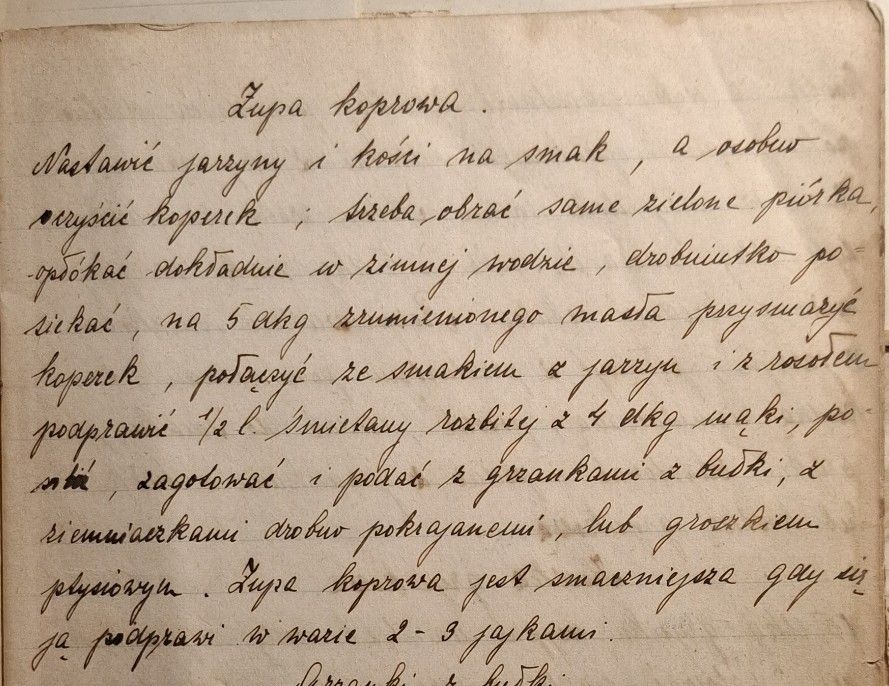 Zupa koprowa.
Nastawić jarzyny i kości na smak, a osobno
oczyścić koperek; trzeba obrać same zielone piórka,
opłókać dokładnie w zimnej wodzie, drobniutko po=
siekać, na 5 dkg zrumienionego masła przysmażyć
koperek, połączyć ze smakiem z jarzyn i z rosołem
podprawić 1/2 l. śmietany rozbitej z 4 dkg mąki, po-
solić, zagotować i podać z grzankami z bułki, z
ziemniaczkami drobno pokrajanemi, lub groszkiem
ptysiowym. Zupa koprowa jest smaczniejsza gdy się
ją podprawi w wazie 2-3 jajkami.
Grzanki z bułki